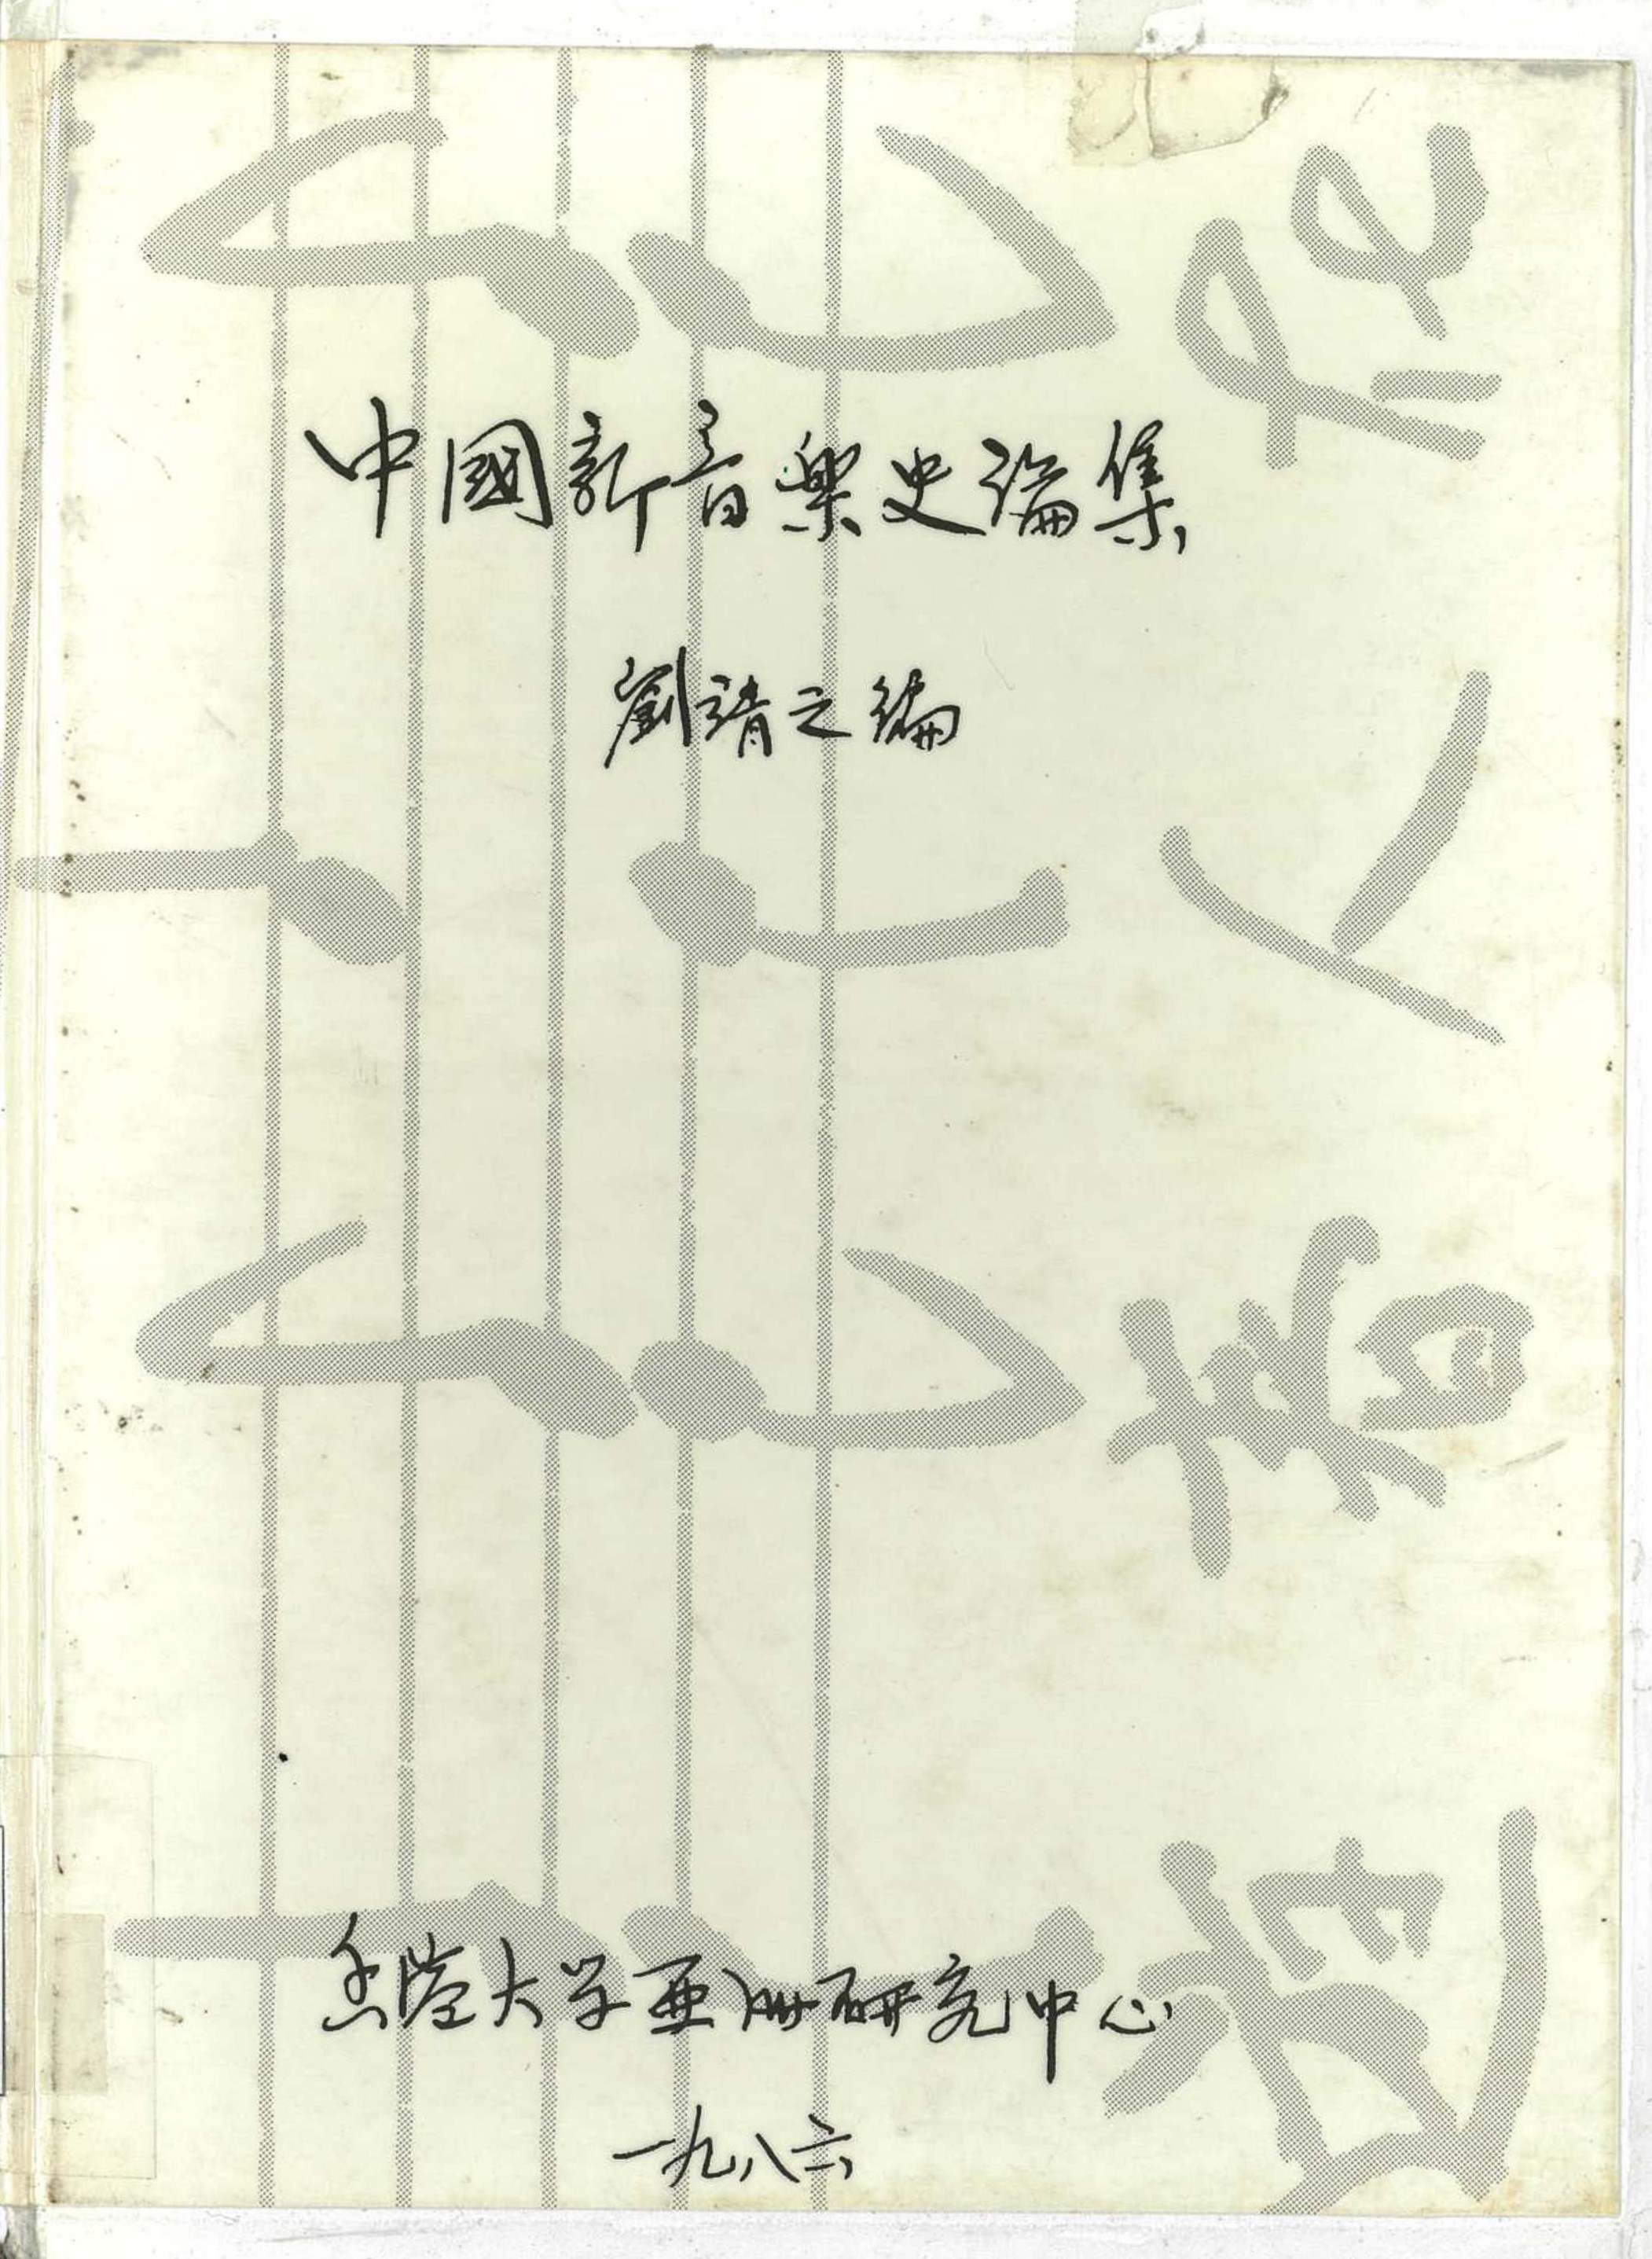 中國新音樂史論集
劉靖之編
香港大学亜洲研究中心
一九八六